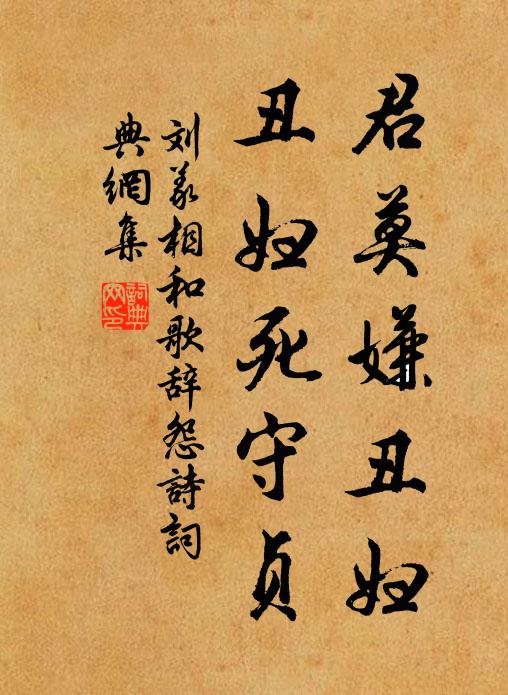 君莫嫌丑妇
丑妇死守贞
刘义相和歌辞怨詩詞
典網集
詞典
网印